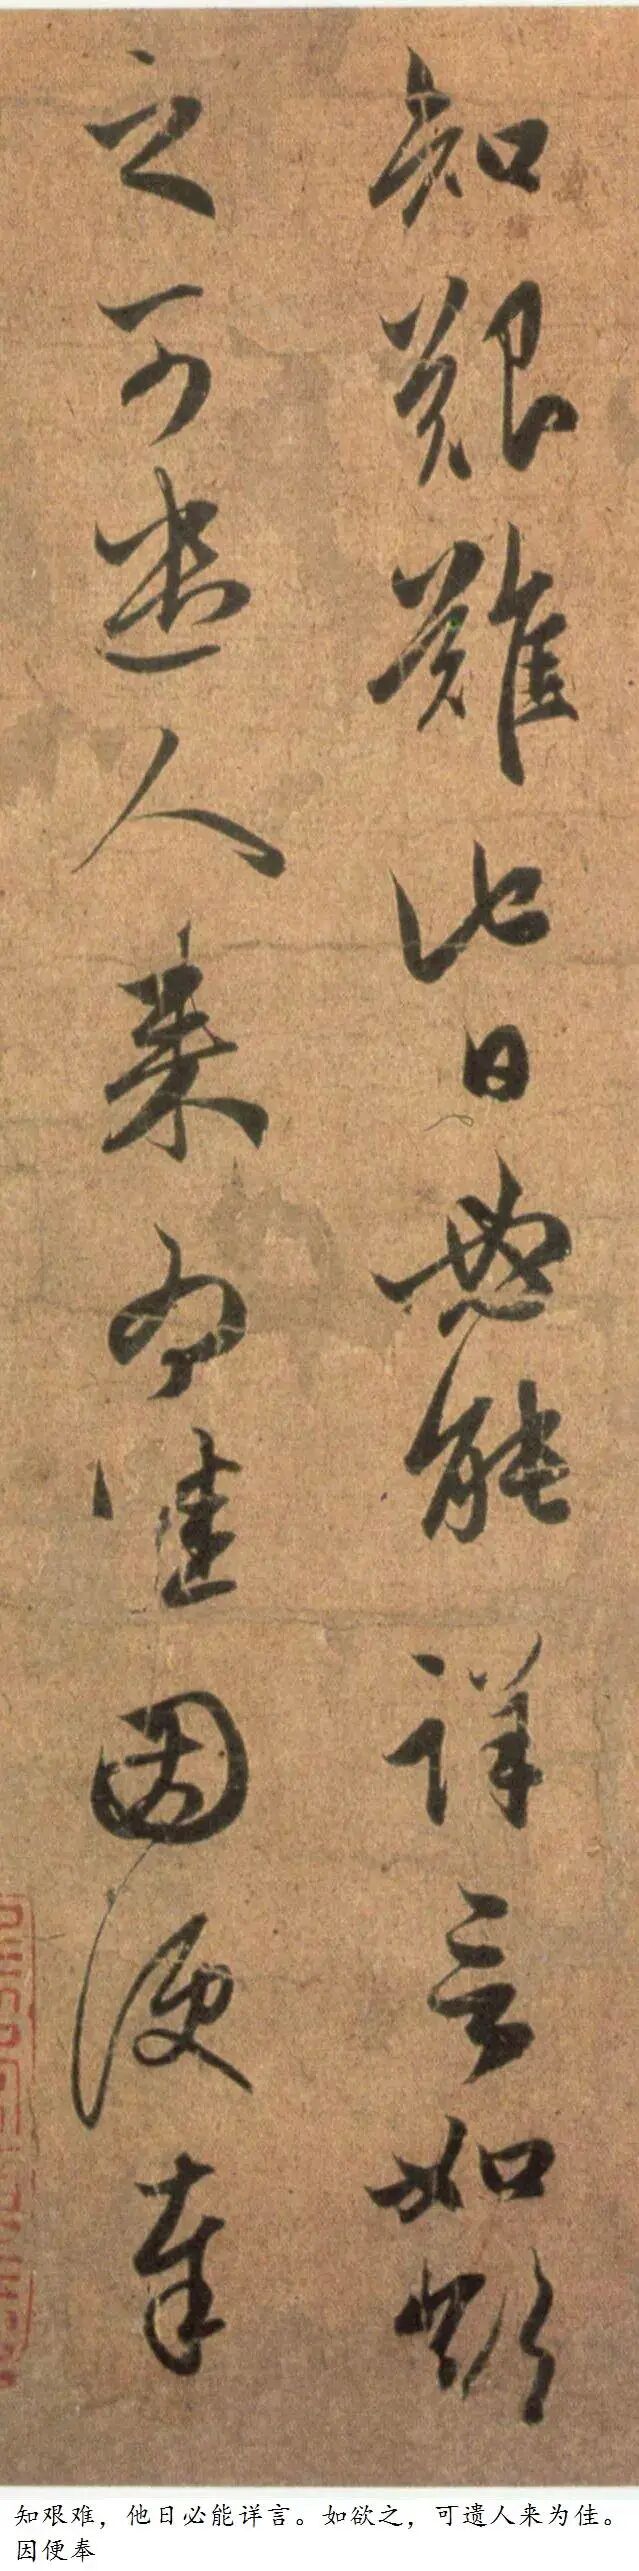 知艱難他日必能詳言如欲
之可遣人來為佳因便奉
知艰难，他日必能详言。如欲之，可遗人来为佳。
因便奉